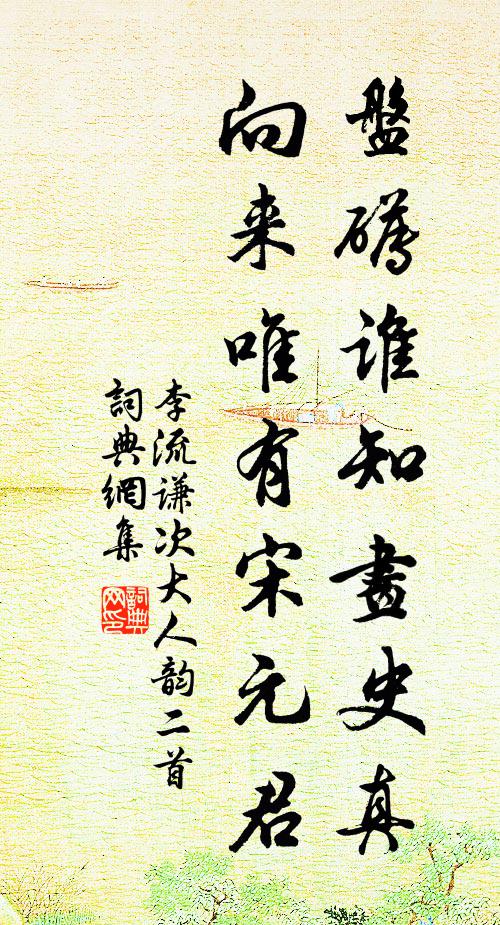 盤礴谁知畫史真
向来唯有宋元君
李流谦次大人韵二首
詞典網集
詞典网印